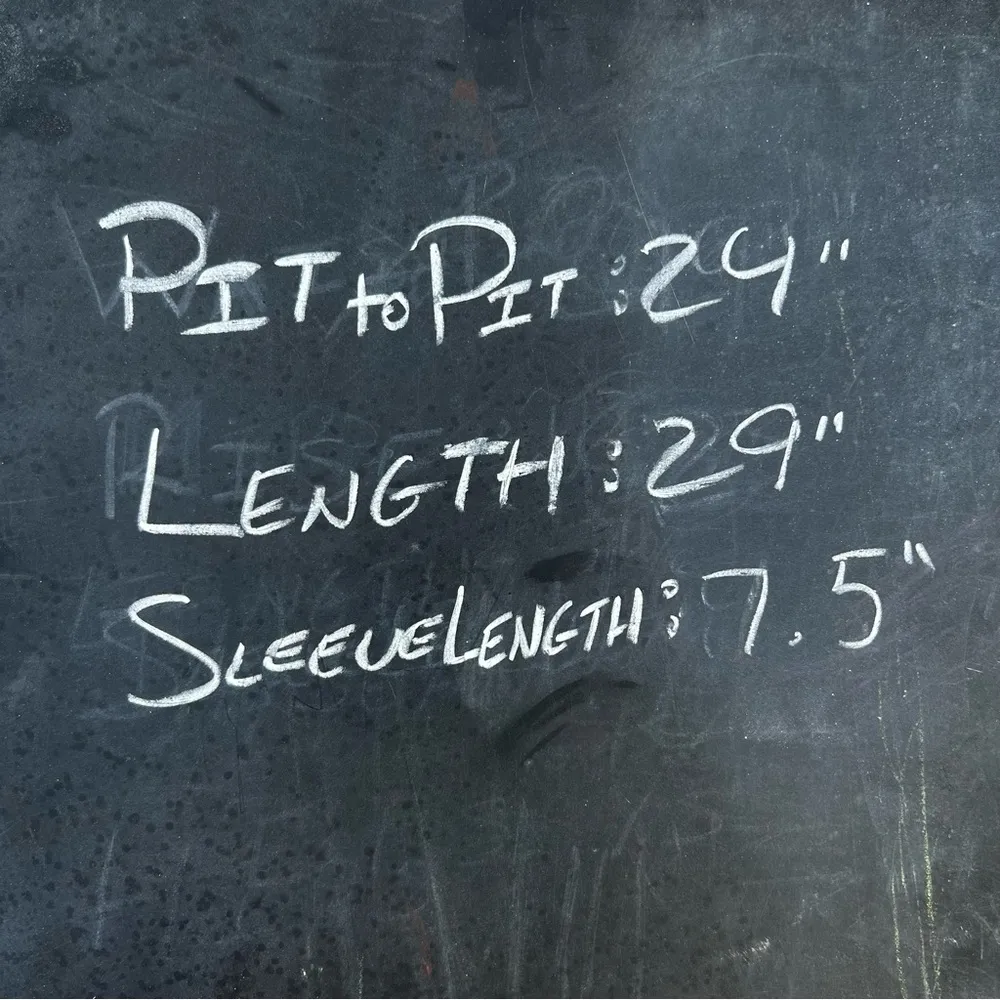 PIT to PIT: 24"
LENGTH: 29"
SLEEVE LENGTH: 7.5"